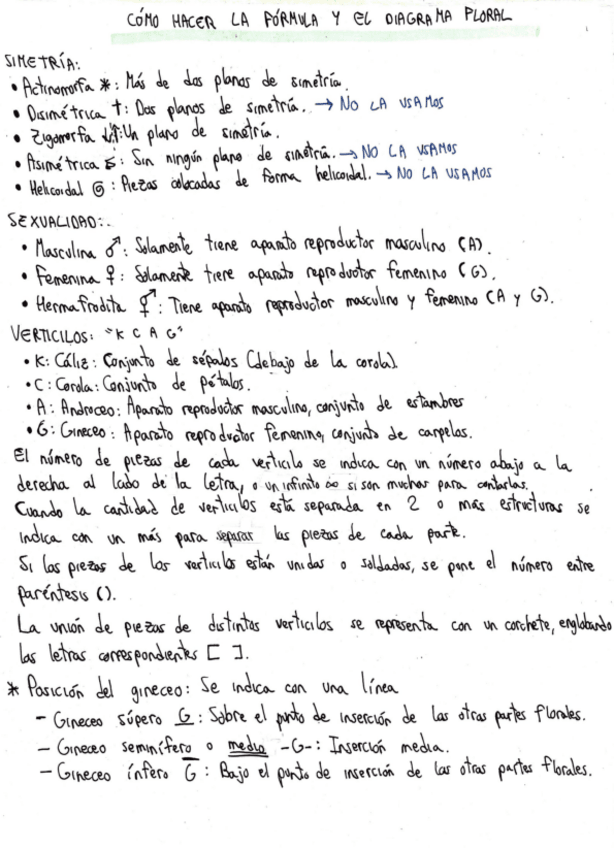 CÓMO HACER LA FÓRMULA Y EL DIAGRAMA FLORAL
SIMETRÍA:
• Actinomorfa *: Más de dos planos de simetría.
• Disimétrica †: Dos planos de simetría. → NO LA USAMOS
• Zigomorfa ↓↑: Un plano de simetría.
• Asimétrica : Sin ningún plano de simetría. → NO LA USAMOS
• Helicoidal @: Piezas colocadas de forma helicoidal. → NO LA USAMOS
SEXUALIDAD:.
• Masculina ♂: Solamente tiene aparato reproductor masculino (A).
• Femenina ♀: Solamente tiene aparato reproductor femenino (G).
• Hermafrodita ⚥: Tiene aparato reproductor masculino y femenino (A y G).
VERTICILOS: "K C A G"
• K: Cáliz: Conjunto de sépalos (debajo de la corola).
• C: Corola: Conjunto de pétalos.
• A: Androceo: Aparato reproductor masculino, conjunto de estambres
• G: Gineceo: Aparato reproductor femenino, conjunto de carpelos.
El número de piezas de cada verticilo se indica con un número abajo a la
derecha al lado de la letra, o un infinito ∞ si son muchas para contarlas.
Cuando la cantidad de verticilos está separada en 2 o más estructuras se
indica con un más para separar las piezas de cada parte.
Si las piezas de los verticilos están unidas o soldadas, se pone el número entre
paréntesis ().
La unión de piezas de distintos verticilos se representa con un corchete, englobando
las letras correspondientes [ ].
* Posición del gineceo: Se indica con una línea
- Gineceo súpero G̲: Sobre el punto de inserción de las otras partes florales.
- Gineceo seminífero o medio -G-: Inserción media.
- Gineceo ínfero G̅: Bajo el punto de inserción de las otras partes florales.